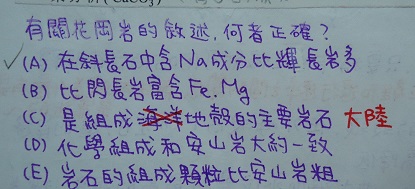 有關花岡岩的敘述,何者正確?
✓(A) 在斜長石中含Na成分比輝長岩多
(B) 比閃長岩富含Fe.Mg
(C) 是組成海洋地殼的主要岩石 大陸
(D) 化學組成和安山岩大約一致
(E) 岩石的組成顆粒比安山岩粗